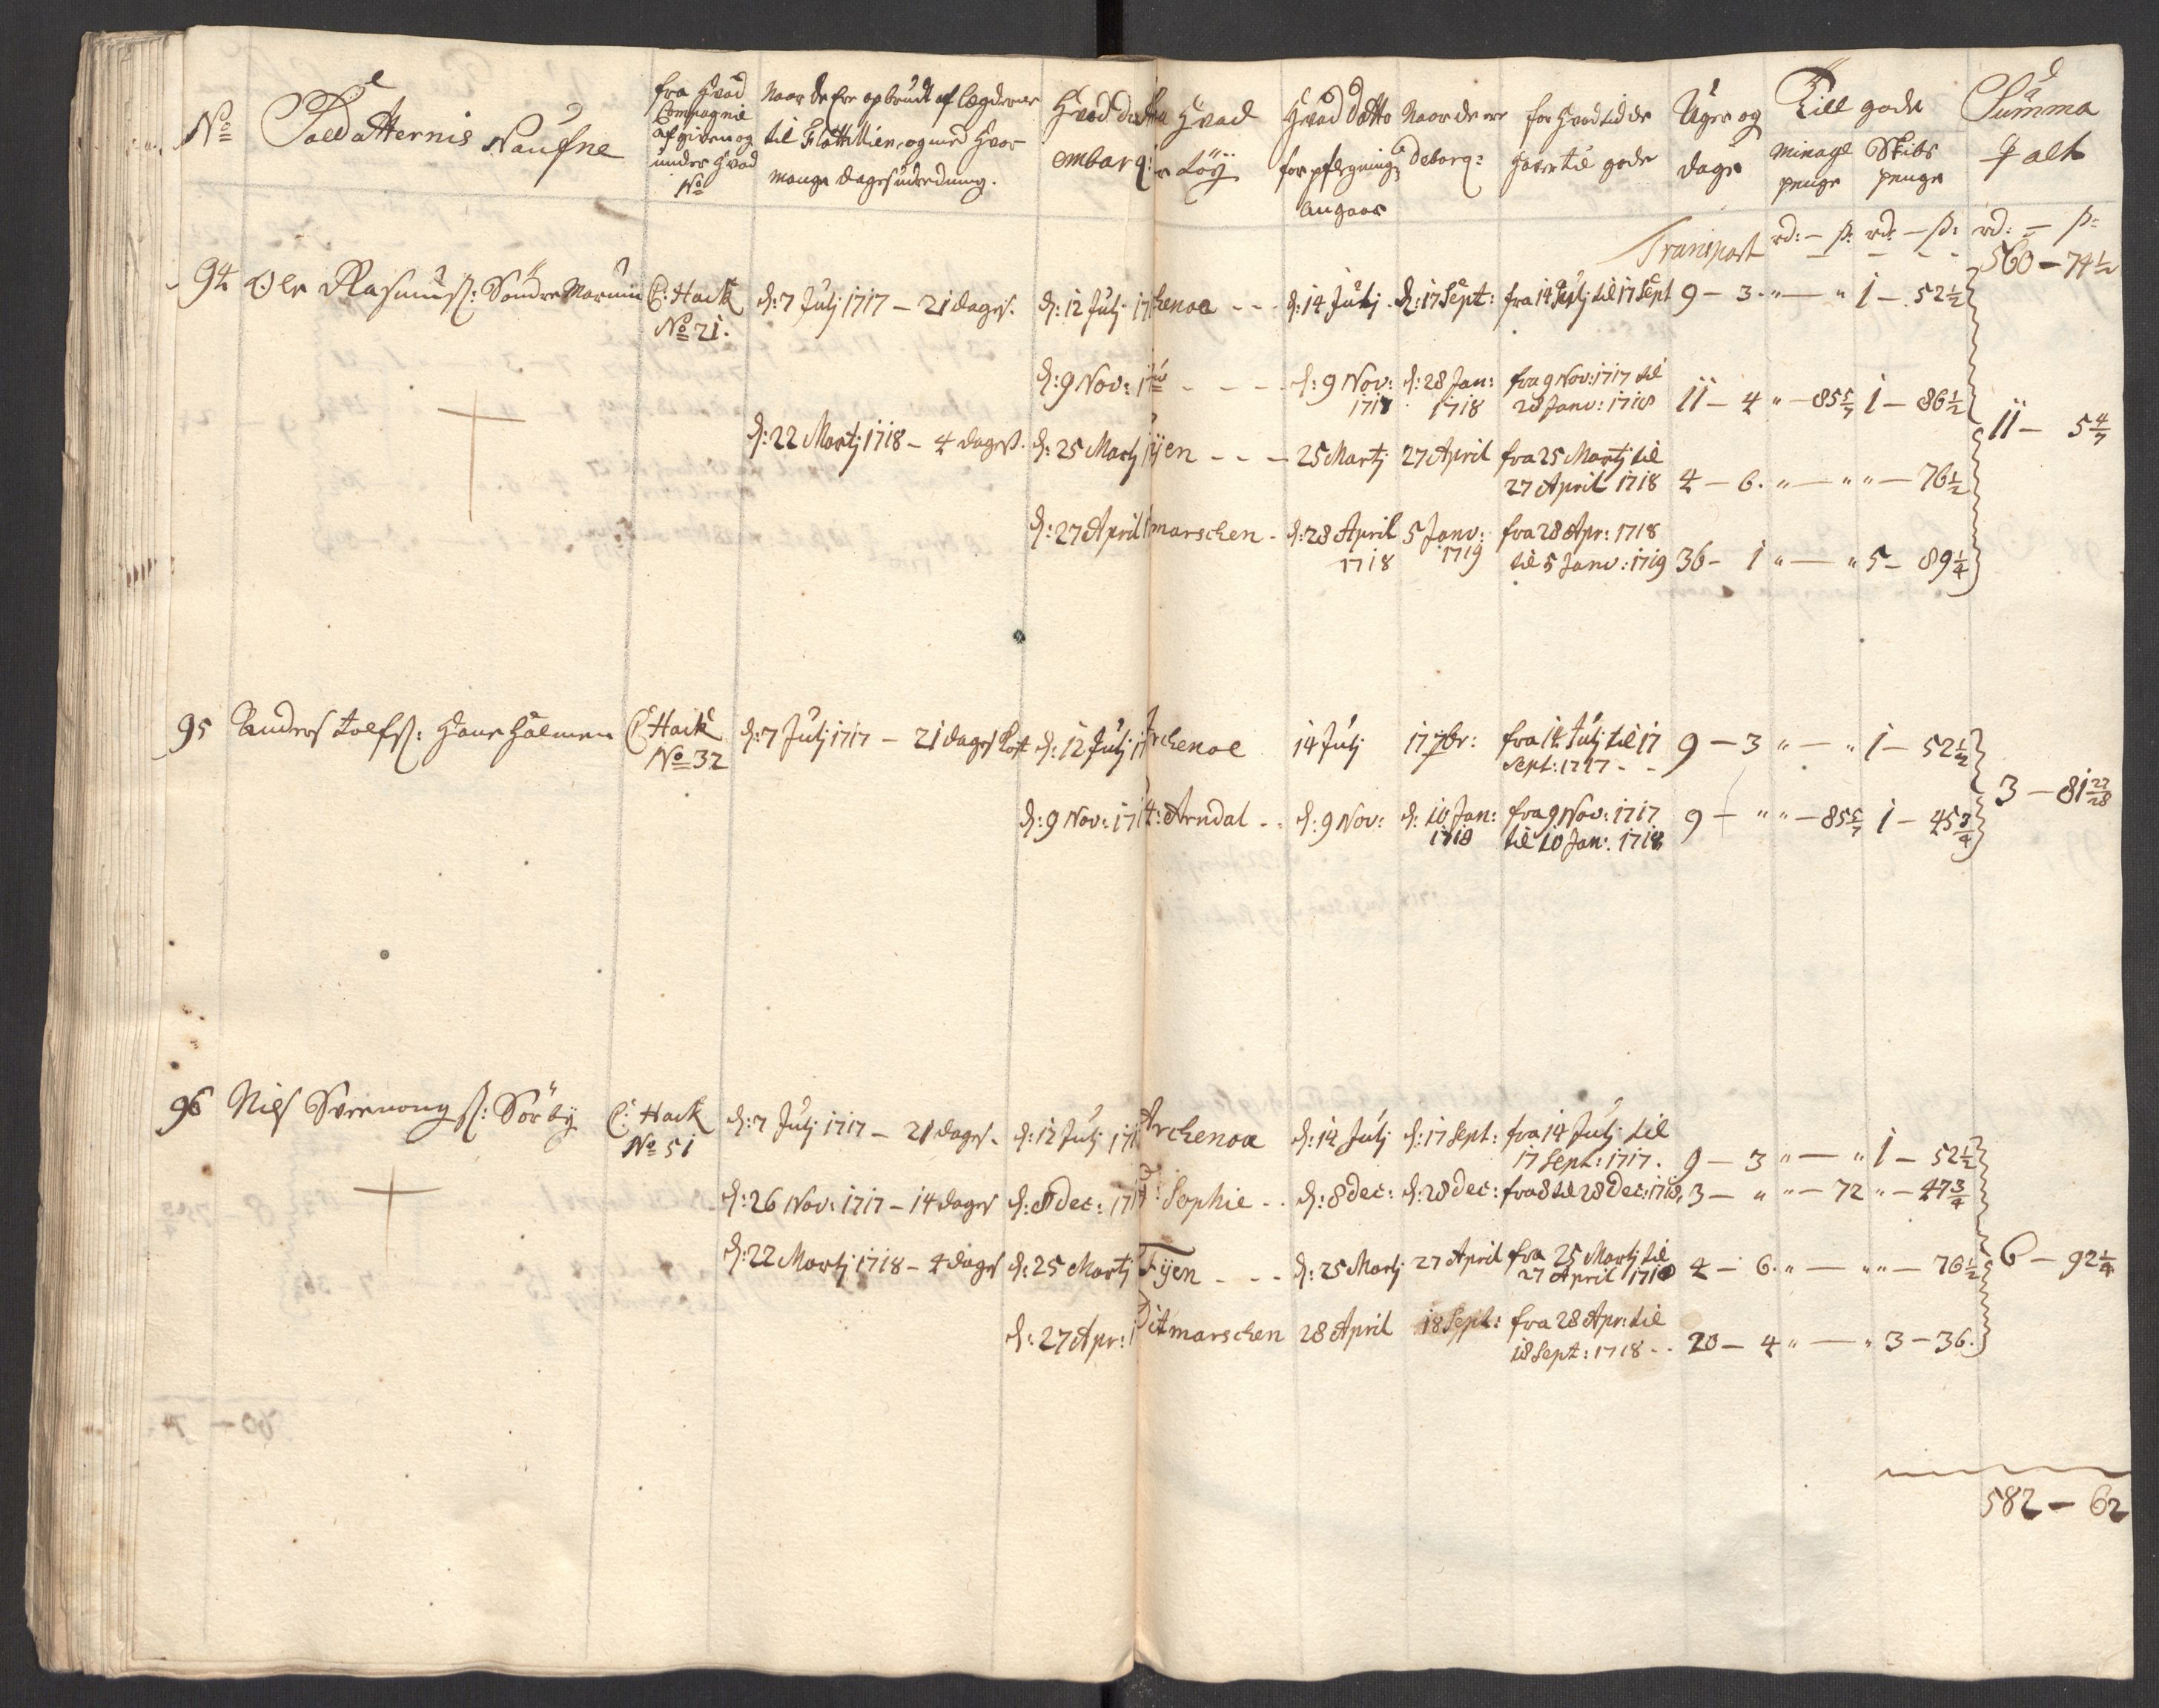 No Soldatternis Naufne fra hvad Compagnie afgiven og under hvad No Naar de ere opbrudt af lægderne til Flottillien, og med hvor mange dages udredning. Hvad embarq: hvad Töÿ Hvad datto forpflegning angaar Naar de ere deborq: for hvad tid de haver til gode Uger og dage Till gode minage penge Skibs penge Summa alt
Transport rd: - s: rd: - s: rd: - s:
560 - 74 1/2
94 Ole Rasmuss: Söndre C: Hack d: 7 Julj 1717 - 21 dages. d: 12 Julj d: 14 Julj d: 17 Sept: fra 14 Julj til 17 Sept 9 - 3 " - " 1 - 52 1/2
No 21.
d: 9 Nov: d: 9 Nov: 1717 d: 28 Jan: 1718 fra 9 Nov: 1717 til 28 Janv: 1718 11 - 4 " - 85 5/7 1 - 86 1/2
11 - 5 4/7
d: 22 Martj 1718 - 4 dages. d: 25 Martj 25 Martj 27 April fra 25 Martj til 27 April 1718 4 - 6. " - " " - 76 1/2
d: 27 April marschen - d: 28 April 1718 5 Janv: 1719 fra 28 Apr: 1718 til 5 Janv: 1719 36 - 1 " - " 5 - 89 1/4
95 Anders C: Hack d: 7 Julj 1717 - 21 dages Kost d: 12 Julj Archenoe 14 Julj 17 7br: fra 14 Julj til 17 Sept: 1717 - - 9 - 3 " - " 1 - 52 1/2
No 32
3 - 81 27/28
d: 9 Nov: Arndal - - d: 9 Nov: d: 10 Jan: 1718 fra 9 Nov: 1717 til 10 Jan: 1718 9 - " " - 85 5/7 1 - 45 3/4
96 Niels Svennongs: Sörbÿ C: Hack d: 7 Julj 1717 - 21 dages - d: 12 Julj Archenoa d: 14 Julj d: 17 Sept: fra 14 Julj til 17 Sept: 1717. 9 - 3 " - " 1 - 52 1/2
No 51
d: 26 Nov: 1717 - 14 dages d: 8 Dec: Sophie - - d: 8 Dec: d: 28 Dec: fra 8 til 28 Dec: 3 - " " - 72 " - 47 3/4
d: 22 Martj 1718 - 4 dages d: 25 Martj Fÿen - - - d: 25 Martj 27 April fra 25 Martj til 27 April 1718 4 - 6. " - " " - 76 1/2
6 - 92 1/4
d: 27 Apr: Ditmarschen 28 April 18 Sept: fra 28 Apr: til 18 Sept: 1718 - - 20 - 4 " - " 3 - 36.
582 - 62